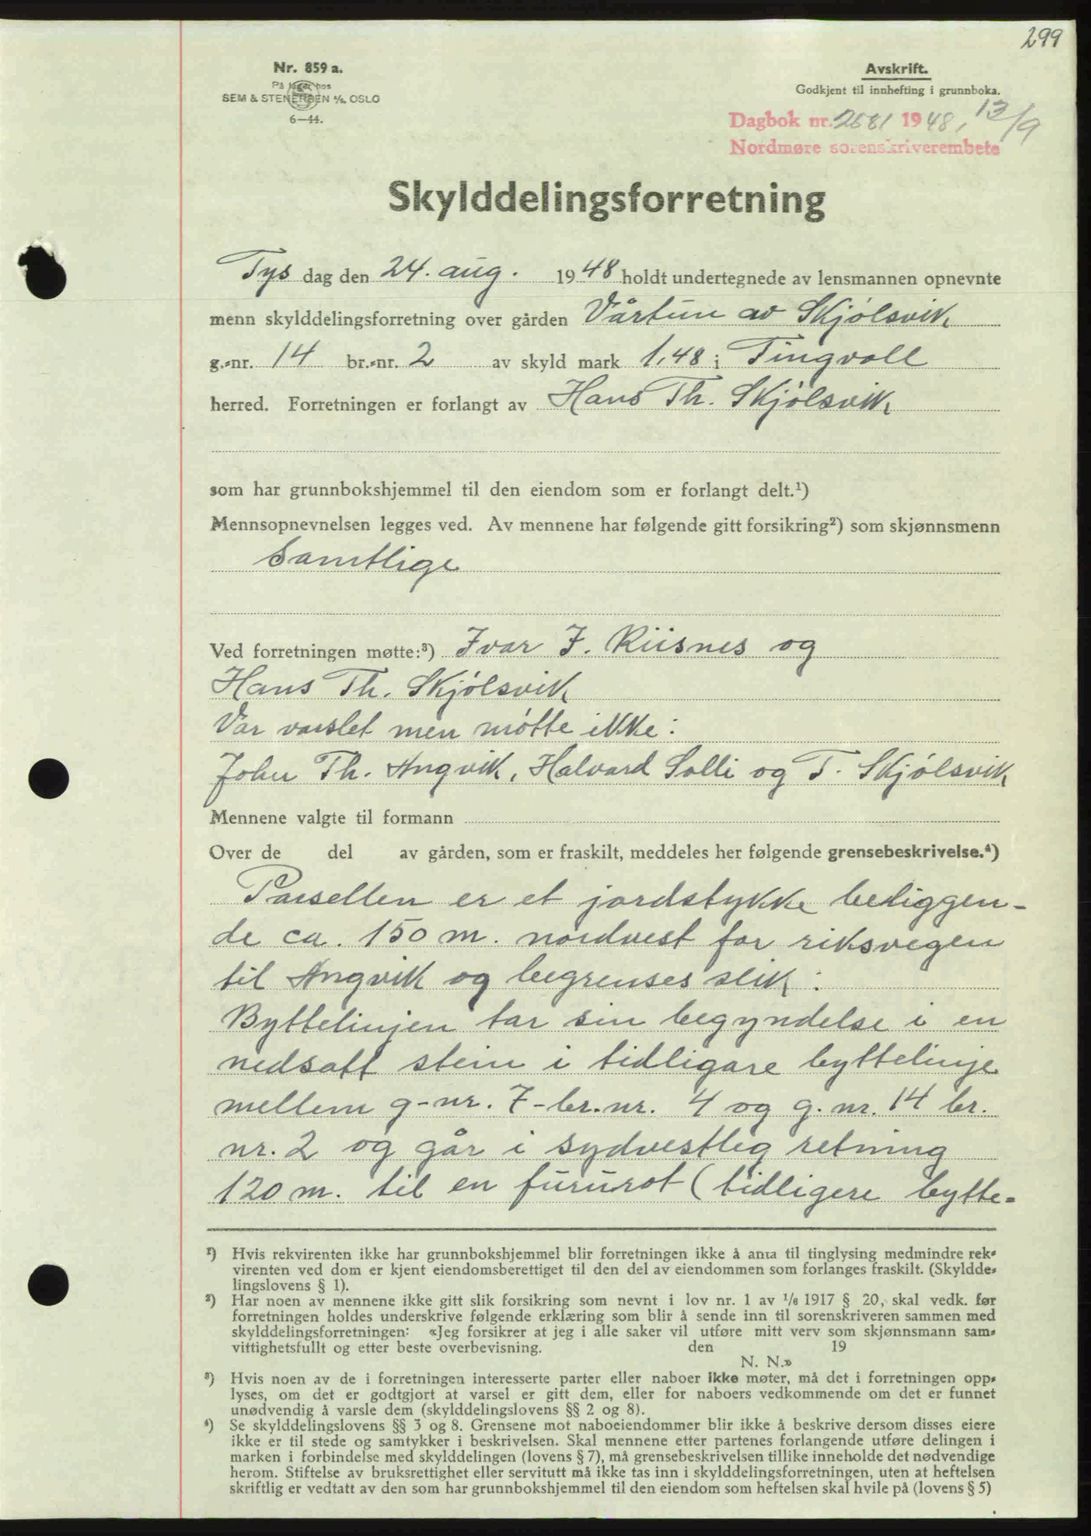 299
Nr. 859 a.
På lager hos
SEM & STENERSEN A/S OSLO
6—44.
Avskrift.
Godkjent til innhefting i grunnboka.
Dagbok nr. 2581 1948, 13/9
Nordmøre sorenskriverembete
Skylddelingsforretning
Tys dag den 24. aug. 1948 holdt undertegnede av lensmannen opnevnte
menn skylddelingsforretning over gården Vårtun av Skjølsvik
g.-nr. 14 br.-nr. 2 av skyld mark 1,48 i Tingvoll
herred. Forretningen er forlangt av Hans Th. Skjølsvik
som har grunnbokshjemmel til den eiendom som er forlangt delt.¹)
Mennsopnevnelsen legges ved. Av mennene har følgende gitt forsikring²) som skjønnsmenn
Samtlige
Ved forretningen møtte:³) Ivar J. Riisnes og
Hans Th. Skjølsvik
Var varslet men møtte ikke:
John Th. Angvik, Halvard Solli og T. Skjølsvik
Mennene valgte til formann
Over de del av gården, som er fraskilt, meddeles her følgende grensebeskrivelse.⁴)
Parsellen er et jordstykke beliggen-
de ca. 150 m. nordvest for riksvegen
til Angvik og begrenses slik:
Byttelinjen tar sin begyndelse i en
nedsatt stein i tidligare byttelinje
mellem g-nr. 7-br.nr. 4 og g.nr. 14 br.
nr. 2 og går i sydvestlig retning
120 m. til en fururot (tidligere bytte-
¹) Hvis rekvirenten ikke har grunnbokshjemmel blir forretningen ikke å anta til tinglysing medmindre rek-
virenten ved dom er kjent eiendomsberettiget til den del av eiendommen som forlanges fraskilt. (Skyldde-
lingslovens § 1).
²) Har noen av mennene ikke gitt slik forsikring som nevnt i lov nr. 1 av 1/6 1917 § 20, skal vedk. før
forretningen holdes underskrive følgende erklæring som blir å sende inn til sorenskriveren sammen med
skylddelingsforretningen: «Jeg forsikrer at jeg i alle saker vil utføre mitt verv som skjønnsmann sam-
vittighetsfullt og etter beste overbevisning. den 19
N. N.»
³) Hvis noen av de i forretningen interesserte parter eller naboer ikke møter, må det i forretningen opp-
lyses, om det er godtgjort at varsel er gitt dem, eller for naboers vedkommende om det er funnet
unødvendig å varsle dem (skylddelingslovens §§ 2 og 8).
⁴) Se skylddelingslovens §§ 3 og 8. Grensene mot naboeiendommer blir ikke å beskrive dersom disses eiere
ikke er til stede og samtykker i beskrivelsen. Skal mennene etter partenes forlangende utføre delingen i
marken i forbindelse med skylddelingen (lovens § 7), må grensebeskrivelsen tillike inneholde det nødvendige
herom. Stiftelse av bruksrettighet eller servitutt må ikke tas inn i skylddelingsforretningen, uten at heftelsen
skriftlig er vedtatt av den som har grunnbokshjemmel til den eiendom som heftelsen skal hvile på (lovens § 5)